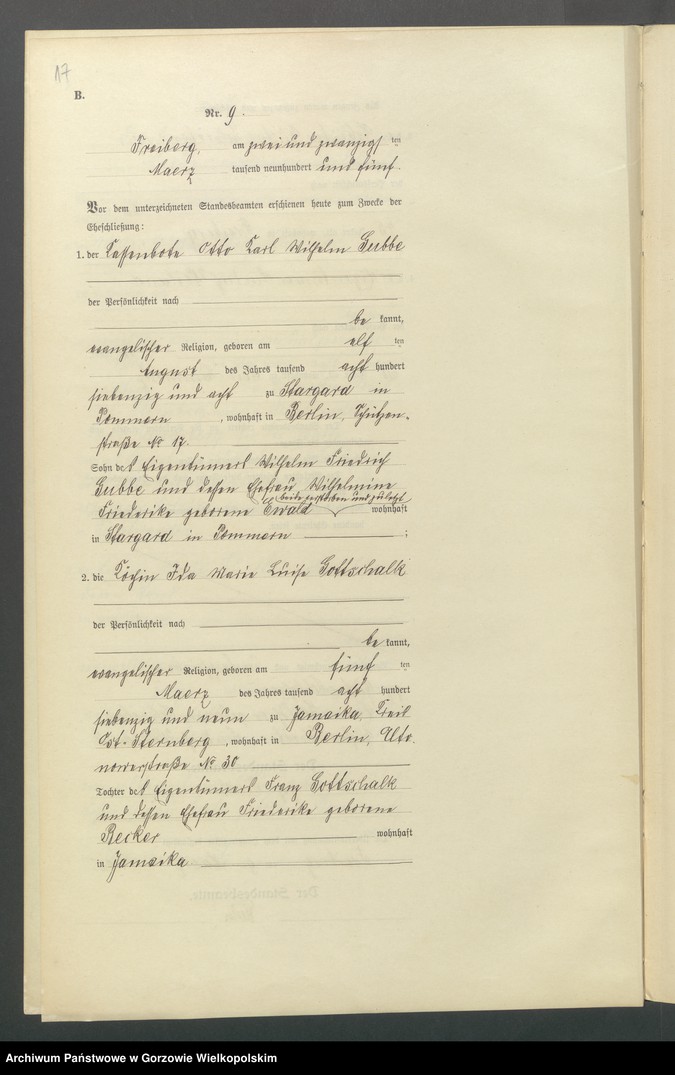 17
B.
Nr. 9.
Freiberg, am zwei und zwanzigsten
Maerz tausend neunhundert und fünf.
Vor dem unterzeichneten Standesbeamten erschienen heute zum Zwecke der
Eheschließung:
1. der Kassenbote Otto Karl Wilhelm Gubbe
der Persönlichkeit nach
be kannt,
evangelischer Religion, geboren am elf ten
August des Jahres tausend acht hundert
siebenzig und acht zu Stargard in
Pommern, wohnhaft in Berlin, Schützen-
straße No 17.
Sohn des Eigentümers Wilhelm Friedrich
Gubbe und dessen Ehefrau Wilhelmine
beide verstorben und zuletzt
Friederike geborene Ewald wohnhaft
in Stargard in Pommern ;
2. die Köchin Ida Marie Luise Gottschalk
der Persönlichkeit nach
be kannt,
evangelischer Religion, geboren am fünf ten
Maerz des Jahres tausend acht hundert
siebenzig und neun zu Jamaika, Kreis
Ost-Sternberg, wohnhaft in Berlin,
straße No 30
Tochter des Eigentümers Franz Gottschalk
und dessen Ehefrau Friederike geborene
Recker wohnhaft
in Jamaika
Der Standesbeamte.
Archiwum Państwowe w Gorzowie Wielkopolskim